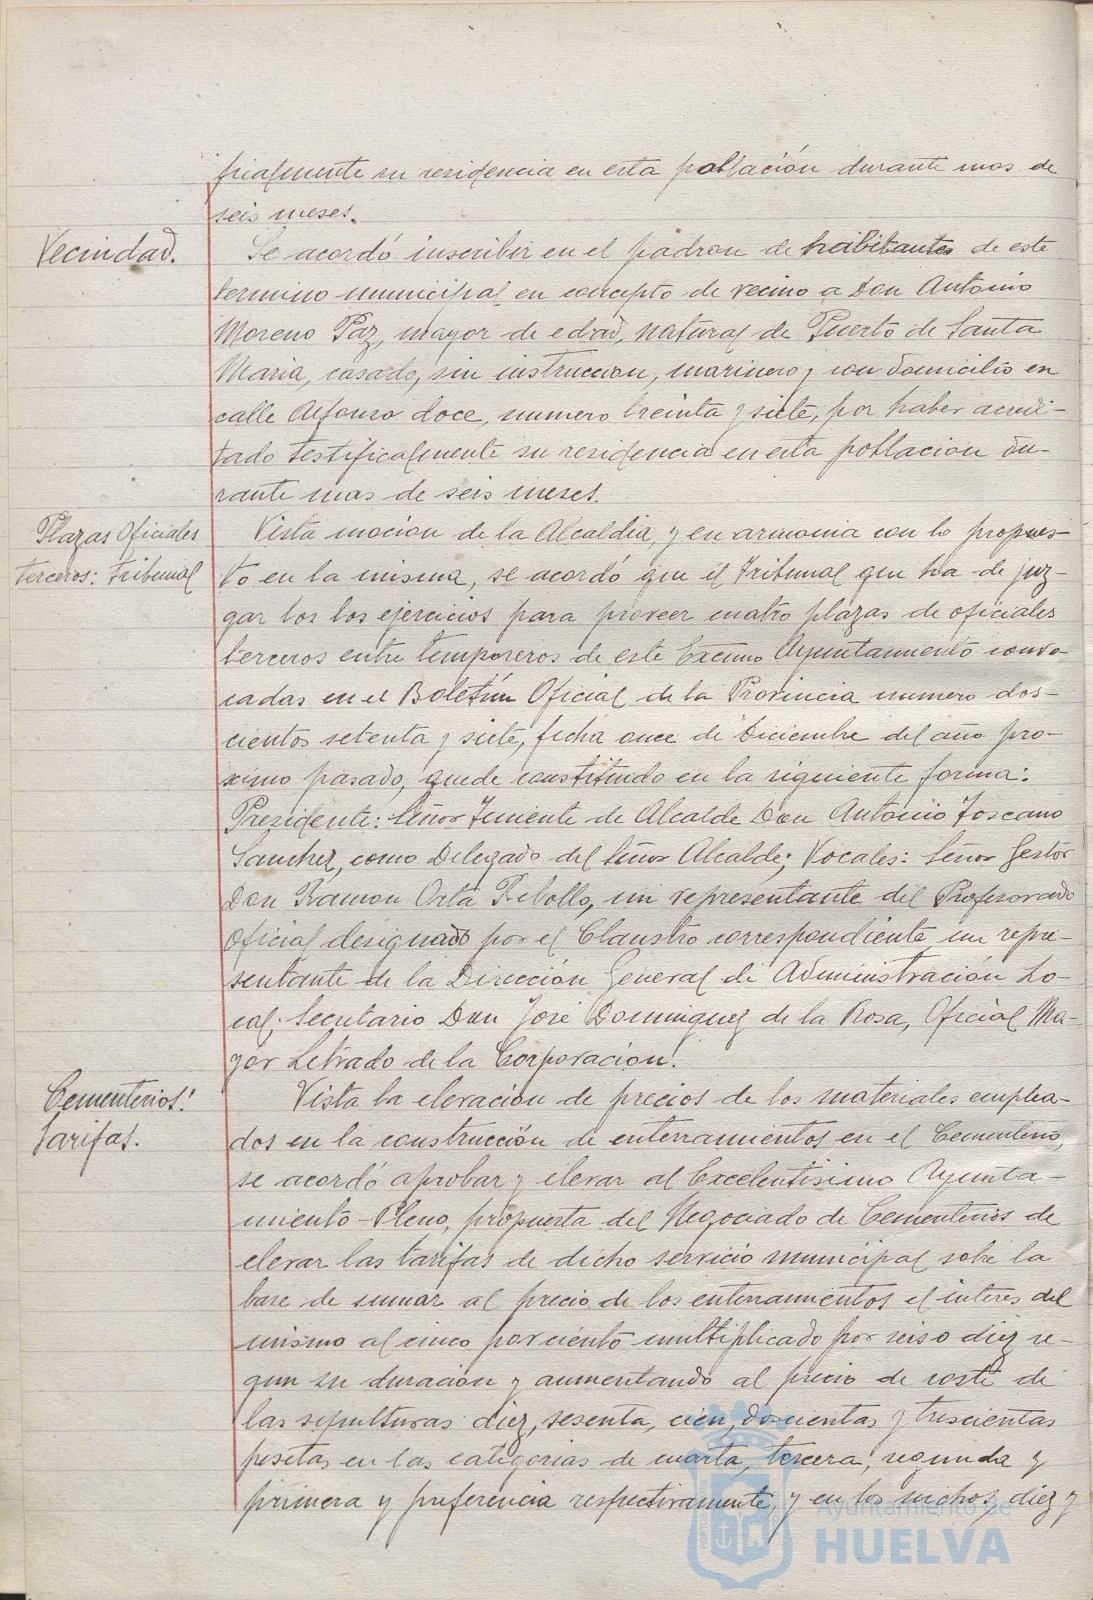 ficalmente su residencia en esta población durante mas de
seis meses.
Vecindad.
Se acordó inscribir en el padron de habitantes de este
termino municipal en concepto de vecino a Don Antonio
Moreno Paz, mayor de edad, natural de Puerto de Santa
Maria, casado, sin instruccion, marinero y con domicilio en
calle Alfonso doce, numero treinta y siete, por haber acredi-
tado testificalmente su residencia en esta poblacion du-
rante mas de seis meses.
Plazas Oficiales
terceros: Tribunal
Vista mocion de la Alcaldia, y en armonia con lo propues-
to en la misma, se acordó que el Tribunal que ha de juz-
gar los los ejercicios para proveer cuatro plazas de oficiales
terceros entre temporeros de este Excmo Ayuntamiento convo-
cadas en el Boletin Oficial de la Provincia numero dos-
cientos setenta y siete, fecha once de Diciembre del año pro-
ximo pasado, quede constituido en la siguiente forma:
Presidente: Señor Teniente de Alcalde Don Antonio Toscano
Sanchez, como Delegado del Señor Alcalde; Vocales: Señor Gestor
Don Ramon Orta Rebollo, un representante del Profesorado
Oficial designado por el Claustro correspondiente, un repre-
sentante de la Dirección General de Administración Lo-
cal; Secretario Don José Dominguez de la Rosa, Oficial Ma-
yor Letrado de la Corporacion.
Cementerios:
tarifas.
Vista la elevacion de precios de los materiales emplea-
dos en la construcción de enterramientos en el Cementerio,
se acordó aprobar y elevar al Excelentisimo Ayunta-
miento-Pleno, propuesta del Negociado de Cementerios de
elevar las tarifas de dicho servicio municipal sobre la
base de sumar al precio de los enterramientos el interes del
mismo al cinco por ciento multiplicado por seis o diez se-
gun su duracion y aumentando al precio de coste de
las sepulturas diez, sesenta, cien, doscientas y trescientas
pesetas en las categorias de cuarta, tercera, segunda y
primera y preferencia respectivamente, y en los nichos, diez y
Ayuntamiento de
HUELVA